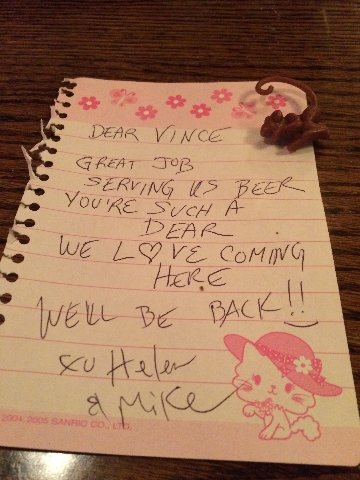 DEAR VINCE
GREAT JOB
SERVING US BEER
YOU'RE SUCH A
DEAR
WE L♡VE COMING
HERE
WE'LL BE BACK!!
xo Helen
& Mike
2004, 2005 SANRIO CO., LTD.